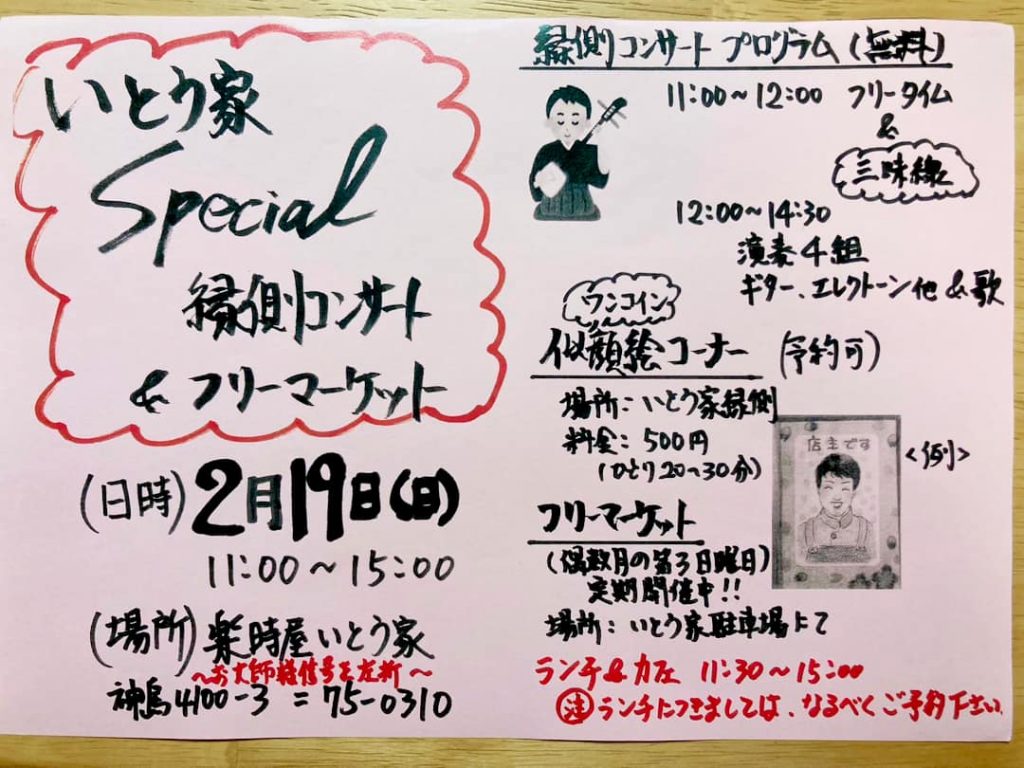 いとう家
Special
縁側コンサート
& フリーマーケット
(日時) 2月19日(日)
11:00～15:00
(場所) 楽時屋いとう家
～お大師様信号を左折～
神島4100-3 = 75-0310
縁側コンサート プログラム (無料)
11:00～12:00 フリータイム
&
三味線
12:00～14:30
演奏4組
ギター、エレクトーン他 & 歌
ワンコイン
似顔絵コーナー (予約可)
場所: いとう家縁側
料金: 500円
(ひとり20～30分)
店主です
<例>
フリーマーケット
(偶数月の第3日曜日)
定期開催中!!
場所: いとう家駐車場にて
ランチ&カフェ 11:30～15:00
注 ランチにつきましては、なるべくご予約下さい。